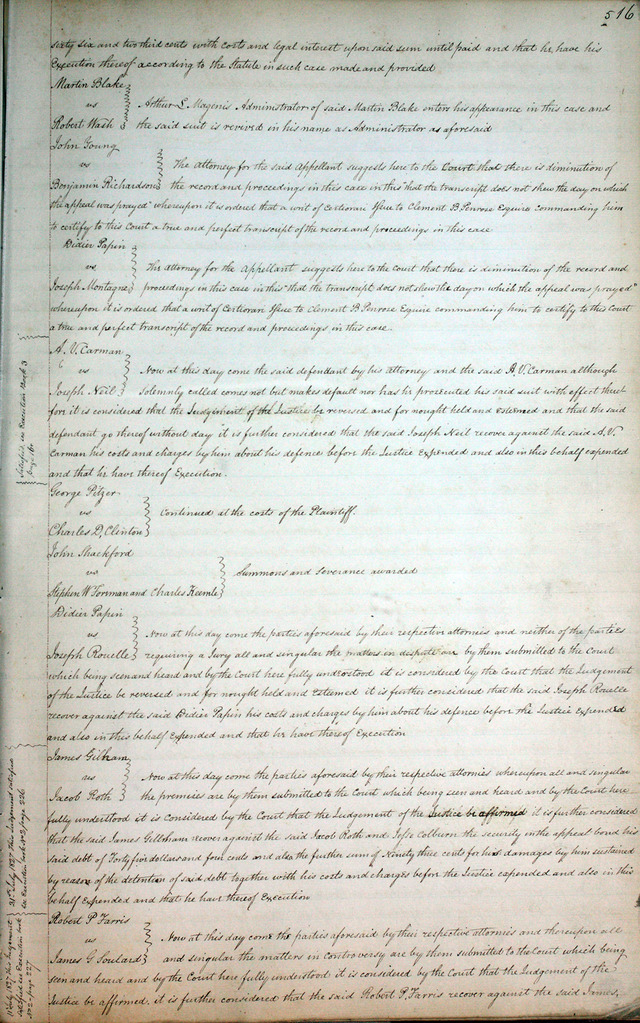 516
sixty six and two third cents with costs and legal interest upon said sum until paid and that he have his
Execution thereof according to the Statute in such case made and provided
Martin Blake
vs
Arthur L Magenis Administrator of said Martin Blake enters his appearance in this case and
Robert Wash
the said suit is revived in his name as Administrator as aforesaid
John Young
vs
The Attorney for the said Appellant suggests here to the Court that there is diminution of
Benjamin Richardson
the record and proceedings in this case in this "that the transcript does not shew the day on which
the appeal was prayed" whereupon it is ordered that a writ of Certiorari Issue to Clement B Penrose Esquire commanding him
to certify to this Court a true and perfect transcript of the record and proceedings in this case
Didier Papin
vs
The attorney for the Appellant suggests here to the Court that there is diminution of the record and
Joseph Montegne
proceedings in this case in this "that the transcript does not shew the day on which the appeal was prayed"
whereupon it is ordered that a writ of Certiorari Issue to Clement B Penrose Esquire commanding him to certify to this Court
a true and perfect transcript of the record and proceedings in this case
A. V. Carman
vs
Now at this day come the said defendant by his attorney and the said A, V. Carman although
Joseph Neil
Solemnly called comes not but makes default nor has he prosecuted his said suit with effect there
fore it is considered that the Judgement of the Justice be reversed and for nought held and esteemed and that the said
defendant go thereof without day it is further considered that the said Joseph Neil recover against the said A, V.
Carman his costs and charges by him about his defence before the Justice Expended and also in this behalf expended
and that he have thereof Execution.
Satisfied, in Execution Book 3
page 161
George Pitzer
vs
Continued at the costs of the Plaintiff.
Charles D, Clinton
John Shackford
vs
Summons and Severance awarded
Stephen W Foreman and Charles Keemle
Didier Papin
vs
Now at this day come the parties aforesaid by their respective attornies and neither of the parties
Joseph Rouelle
requiring a Jury all and singular the matters in dispute are by them submitted to the Court
which being seen and heard and by the Court here fully understood it is considered by the Court that the Judgement
of the Justice be reversed and for nought held and Esteemed it is further considered that the said Joseph Rouelle
recover against the said Didier Papin his costs and charges by him about his defence before the Justice Expended
and also in this behalf Expended and that he have thereof Execution
James Gilham
vs
Now at this day come the parties aforesaid by their respective attornies whereupon all and singular
Jacob Roth
the premises are by them submitted to the Court which being seen and heard and by the Court here
fully understood it is Considered by the Court that the Judgement of the Justice be affirmed it is further considered
that the said James Gilham recover against the said Jacob Roth and Jesse Colburn the security in the appeal bond his
said debt of Forty five dollars and four cents and also the further sum of Ninety three cents for his damages by him sustained
by reason of the detention of said debt together with his costs and charges before the Justice expended and also in this
behalf Expended and that he have thereof Execution
31st July 1827 this Judgment satisfied
in Execution book No 2, page 226
Robert P Farris
vs
Now at this day come the parties aforesaid by their respective attornies and thereupon all
James G Soulard
and singular the matters in controversy are by them submitted to the Court which being
seen and heard and by the Court here fully understood it is considered by the Court that the Judgement of the
Justice be affirmed. it is further considered that the said Robert P. Farris recover against the said James,
July 1827 this Judgement
satisfied in Execution book
No 2 - page 227